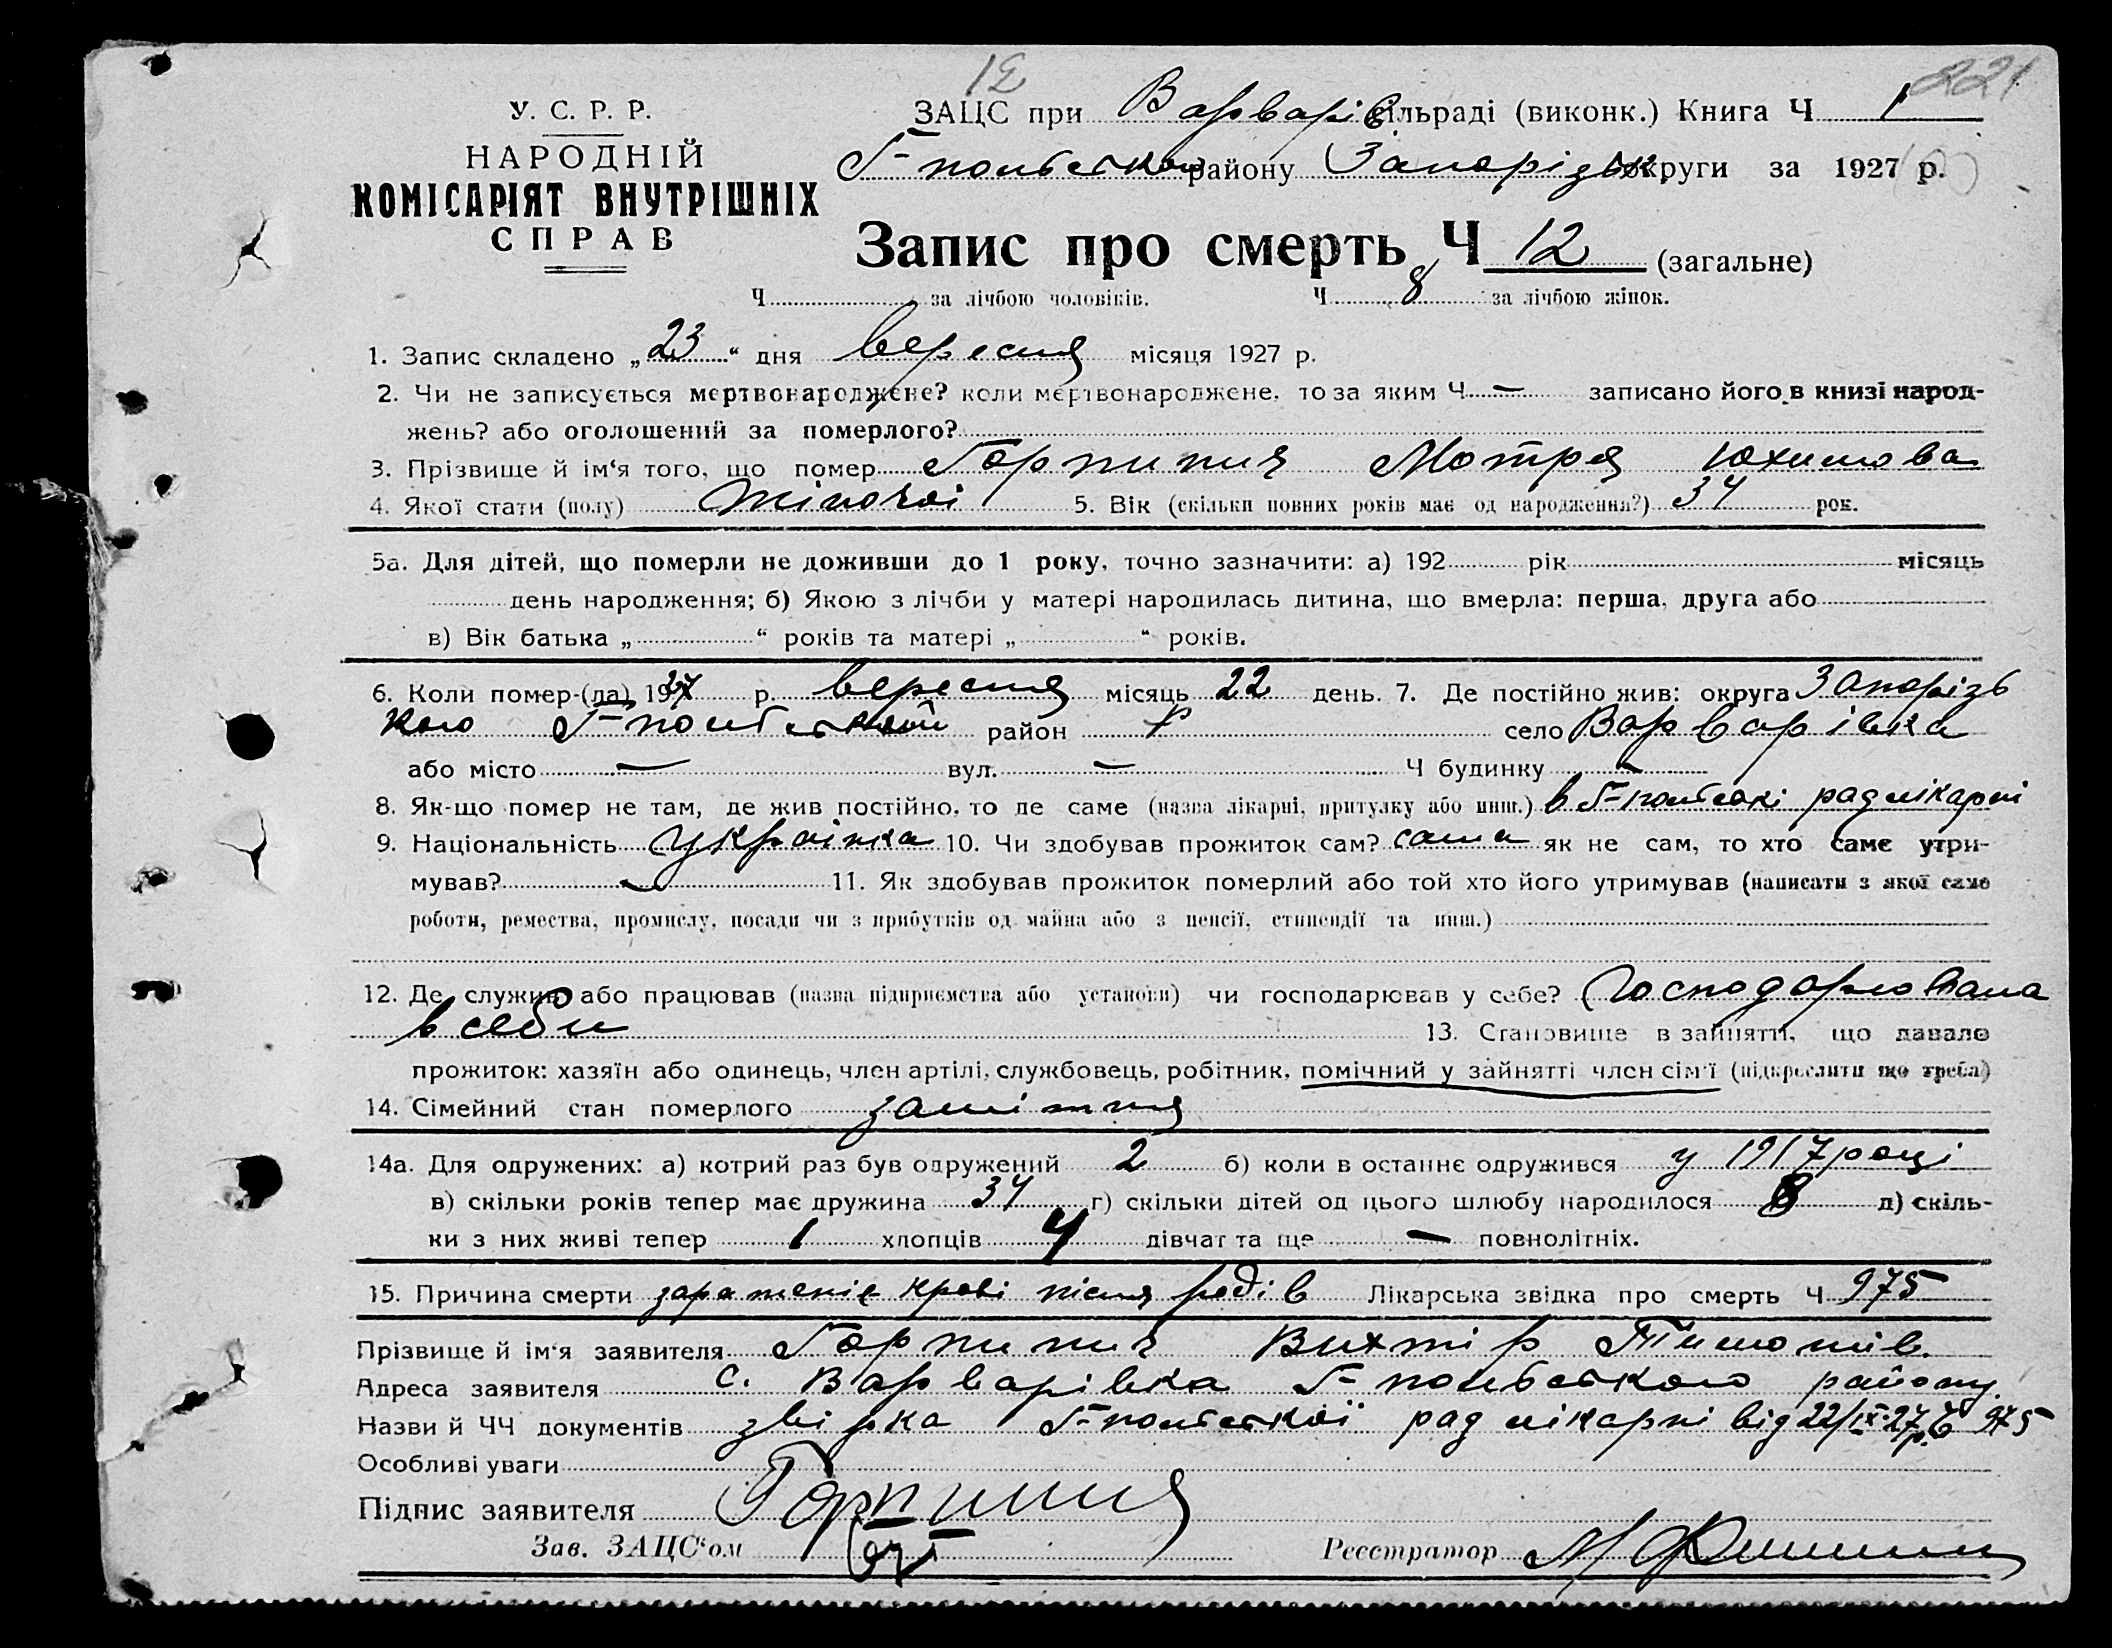 12
221
У. С. Р. Р.
НАРОДНІЙ
КОМІСАРІЯТ ВНУТРІШНІХ
СПРАВ
ЗАЦС при Варварів сільраді (виконк.) Книга Ч 1
Г-польського району Запорізьк округи за 1927 р.
Запис про смерть Ч 12 (загальне)
Ч за лічбою чоловіків. Ч 8 за лічбою жінок.
1. Запис складено „23“ дня вересня місяця 1927 р.
2. Чи не записується мертвонароджене? коли мертвонароджене, то за яким Ч — записано його в книзі народ-
жень? або оголошений за померлого?
3. Прізвище й ім‘я того, що помер Горпинич Мотря Юхимова
4. Якої стати (полу) жіночої 5. Вік (скільки повних років має од народження?) 34 рок.
5а. Для дітей, що померли не доживши до 1 року, точно зазначити: а) 192 рік місяць
день народження; б) Якою з лічби у матері народилась дитина, що вмерла: перша, друга або
в) Вік батька „ “ років та матері „ “ років.
6. Коли помер-(ла) 1927 р. вересня місяць 22 день. 7. Де постійно жив: округа Запорізь
кого Г-польський район село Варварівка
або місто — вул. — Ч будинку —
8. Як-що помер не там, де жив постійно, то де саме (назва лікарні, притулку або инш.) в Г-польскі радлікарні
9. Національність українка 10. Чи здобував прожиток сам? сама як не сам, то хто саме утри-
мував? — 11. Як здобував прожиток померлий або той хто його утримував (написати з якої саме
роботи, ремества, промислу, посади чи з прибутків од майна або з пенсії, стипендії та инш.)
12. Де служив або працював (назва підприємства або установи) чи господарював у себе? Господарювала
в себи
13. Становище в зайнятті, що давало
прожиток: хазяїн або одинець, член артілі, службовець, робітник, помічний у зайнятті член сім‘ї (підкреслити що треба)
14. Сімейний стан померлого заміжня
14а. Для одружених: а) котрий раз був одружений 2 б) коли в останнє одружився у 1917 році
в) скільки років тепер має дружина 34 г) скільки дітей од цього шлюбу народилося 8 д) скіль-
ки з них живі тепер 1 хлопців 4 дівчат та ще — повнолітніх.
15. Причина смерти зараженіє крові після родів Лікарська звідка про смерть Ч 975
Прізвище й ім‘я заявителя Горпинич Вихтір Тимошів.
Адреса заявителя с. Варварівка Г-польського району.
Назви й ЧЧ документів звірка Г-польської рад лікарні від 22/IX-27 р. Ч 975
Особливі уваги
Підпис заявителя Горпинич
Зав. ЗАЦС‘ом
Реєстратор